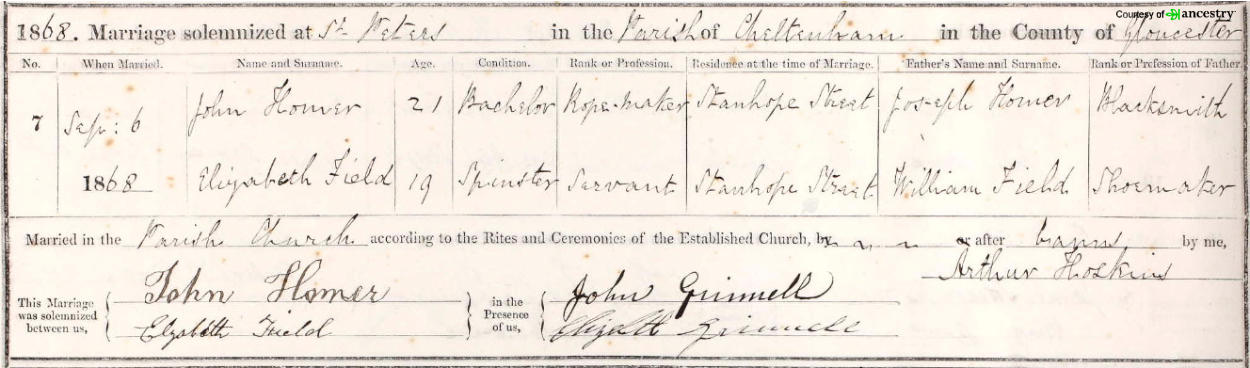 Courtesy of ancestry
1868. Marriage solemnized at St. Peters in the Parish of Cheltenham in the County of Gloucester
No. When Married. Name and Surname. Age. Condition. Rank or Profession. Residence at the time of Marriage. Father's Name and Surname. Rank or Profession of Father.
7 Sep: 6 John Homer 21 Bachelor Rope-maker Stanhope Street Joseph Homer Blacksmith
1868 Elizabeth Field 19 Spinster Servant Stanhope Street William Field Shoemaker
Married in the Parish Church according to the Rites and Ceremonies of the Established Church, by or after banns by me,
Arthur Hoskins
This Marriage was solemnized between us, John Homer in the Presence of us, John Grinnell
Elizabeth Field Elizabeth Grinnell